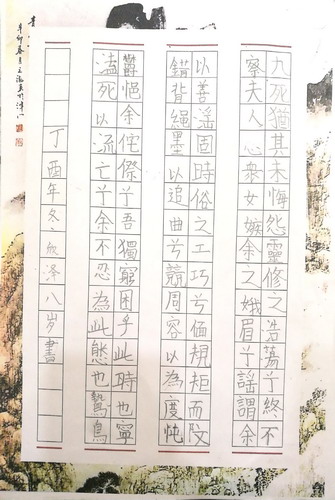 九死猶其未悔怨靈修之浩蕩兮終不
察夫人心衆女嫉余之娥眉兮謡謂余
以善滛固時俗之工巧兮偭規矩而改
錯背繩墨以追曲兮競周容以為度忳
鬱悒余侘傺兮吾獨窮困乎此時也寧
溘死以流亡兮余不忍為此態也鷙鳥
丁酉年冬欣泽八岁書